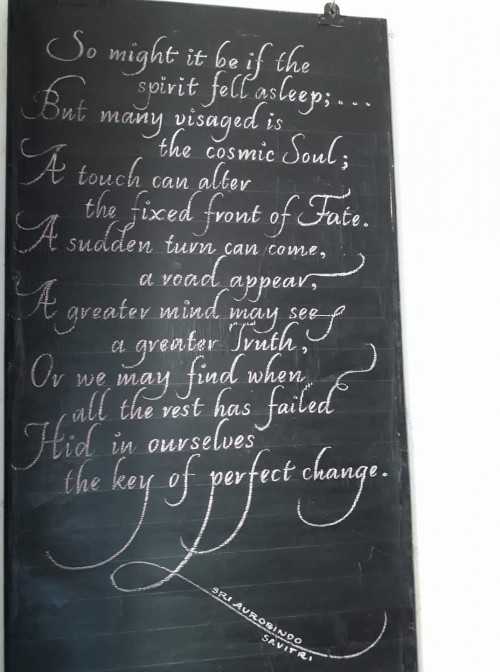 So might it be if the
spirit fell asleep;...
But many visaged is
the cosmic Soul;
A touch can alter
the fixed front of Fate.
A sudden turn can come,
a road appear,
A greater mind may see
a greater Truth,
Or we may find when
all the rest has failed
Hid in ourselves
the key of perfect change.
SRI AUROBINDO
SAVITRI